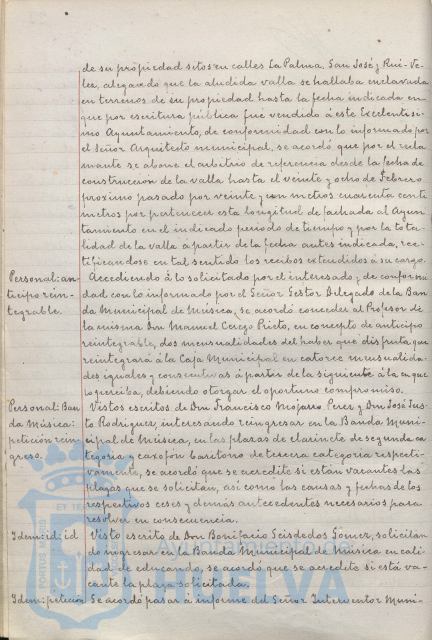 de su propiedad sitos en calles La Palma, San José y Rui-Ve-
lez, alegando que la aludida valla se hallaba enclavada
en terrenos de su propiedad hasta la fecha indicada en
que por escritura pública fué vendido á este Excelentísi-
mo Ayuntamiento, de conformidad con lo informado por
el Señor Arquitecto municipal, se acordó que por el recla
mante se abone el arbitrio de referencia desde la fecha de
construcción de la valla hasta el veinte y ocho de Febrero
próximo pasado por veinte y un metros cuarenta centi
metros por pertenecer esta longitud de fachada al Ayun-
tamiento en el indicado periodo de tiempo y por la tota-
lidad de la valla á partir de la fecha antes indicada, rec-
tificandose en tal sentido los recibos extendidos á su cargo.
Personal: an-
ticipo rein-
tegrable.
Accediendo á lo solicitado por el interesado y de conformi
dad con lo informado por el Señor Gestor Delegado de la Ban
da Municipal de Música, se acordó conceder al Profesor de
la misma Don Manuel Cerejo Prieto, en concepto de anticipo
reintegrable, dos mensualidades del haber que disfruta que
reintegrará á la Caja Municipal en catorce mensualida-
des iguales y consecutivas á partir de la siguiente á la en que
lo perciba, debiendo otorgar el oportuno compromiso.
Personal: Ban
da Música:
petición rein
greso.
Vistos escritos de Don Francisco Mojarro Perez y Don José Jus-
to Rodriguez, interesando reingresar en la Banda Muni-
cipal de Música, en las plazas de clarinete de segunda ca
tegoria y saxofón baritono de tercera categoria respecti-
vamente, se acordó que se acredite si están vacantes las
plazas que se solicitan, así como las causas y fechas de los
respectivos ceses y demás antecedentes necesarios para
resolver en consecuencia.
Idem: id: id
Visto escrito de Don Bonifacio Seisdedos Gómez, solicitan
do ingresar en la Banda Municipal de Música en cali
dad de educando, se acordó que se acredite si está va-
cante la plaza solicitada.
Idem: petición
Se acordó pasar á informe del Señor Interventor Muni-
PORTUS MARIS
ET TE
HUELVA